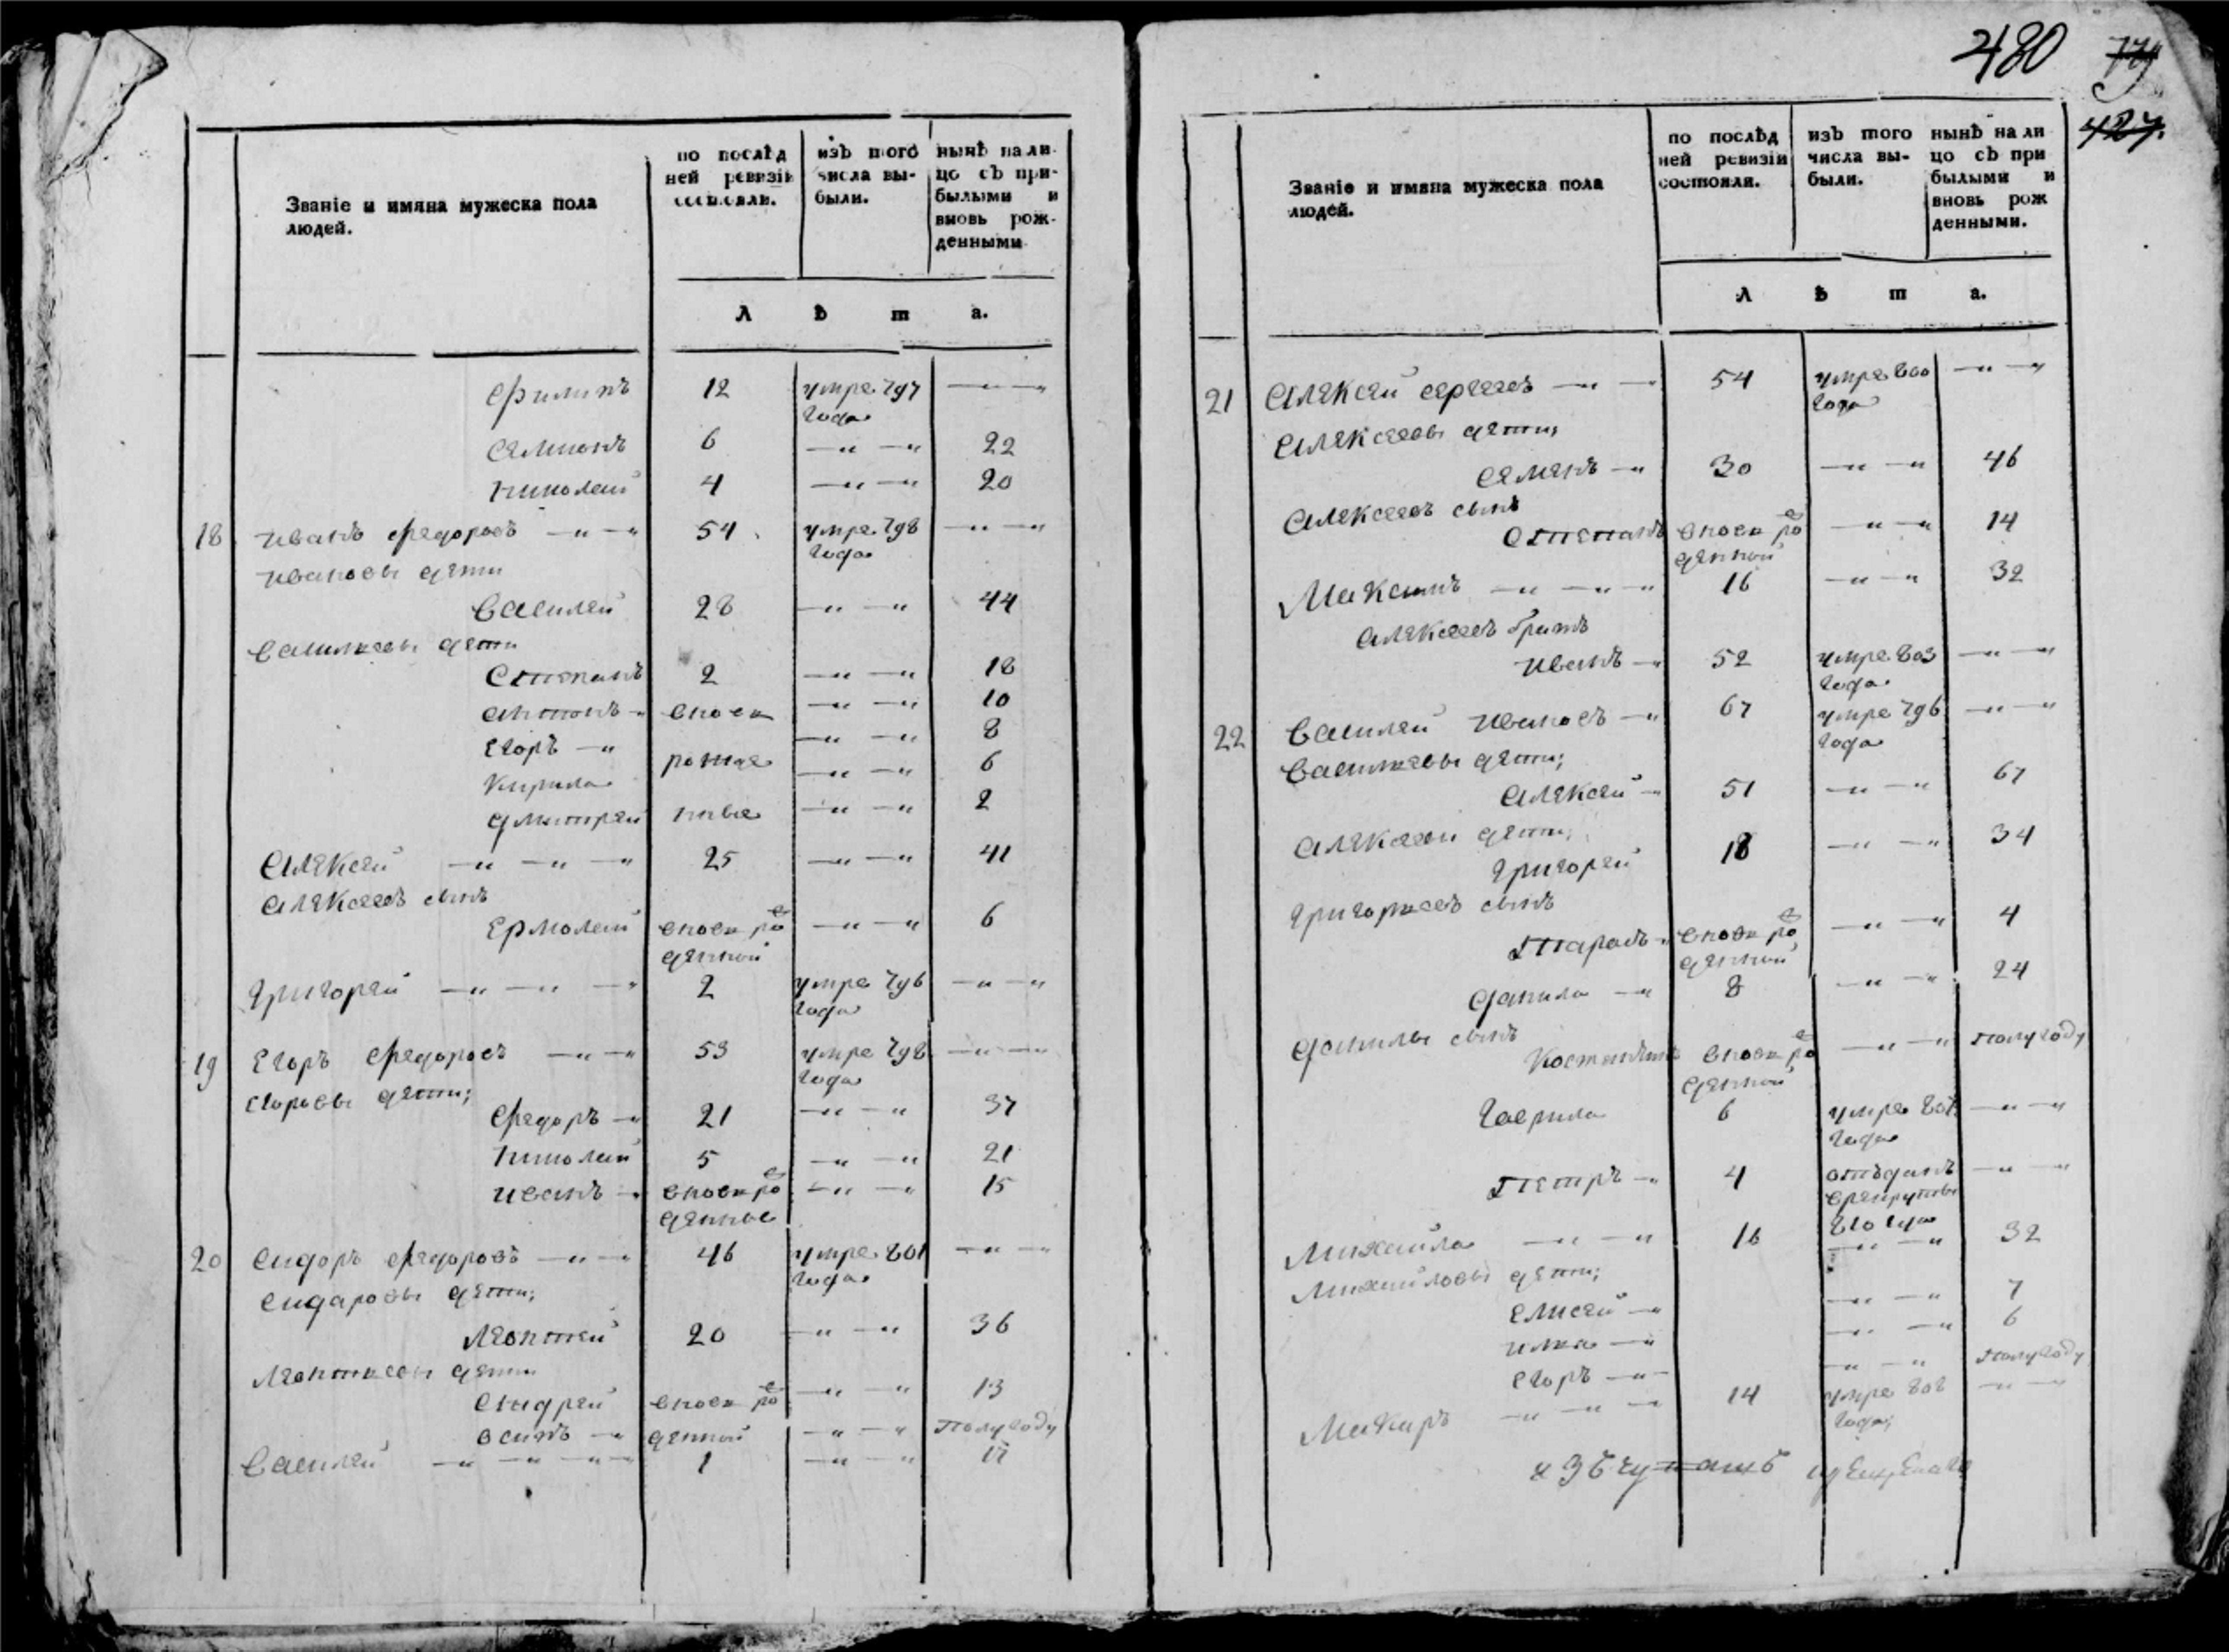 480
427.
Званіе и имяна мужеска пола
людей.
по послѣд
ней ревизіи
состояли.
изъ того
числа вы-
были.
нынѣ нали-
цо съ при-
былыми и
вновь рож-
денными
Л ѣ т а.
Филипъ 12 умре 797 года —
Семионъ 6 — " — " 22
Николай 4 — " — " 20
18 Иванъ Федоровъ — " — " 54 умре 798 года — " — "
Ивановы дети
Василей 28 — " — " 44
Васильевы дети
Степанъ 2 — " — " 18
Антонъ — " вновь — " — " 10
Егоръ — " — " — " 8
Кирила рожде — " — " 6
Дмитрей нные — " — " 2
Алексей — " — " — " 25 — " — " 41
Алексеевъ сынъ
Ермолай вновь ро — " — " 6
денной
Григорей — " — " — " 2 умре 796 года — " — "
19 Егоръ Федоровъ — " — " 53 умре 798 года — " — "
Егоровы дети;
Федоръ — " 21 — " — " 37
Николай 5 — " — " 21
Иванъ — " вновь ро — " — " 15
денные
20 Сидоръ Федоровъ — " — " 46 умре 801 года — " — "
Сидаровы дети;
Леонтей 20 — " — " 36
Леонтьевы дети
Андрей вновь ро — " — " 13
Осипъ — " денной — " — " полугоду
Василей — " — " — " — " 1 — " — " 17
Званіе и имяна мужеска пола
людей.
по послѣд
ней ревизіи
состояли.
изъ того
числа вы-
были.
нынѣ на ли
цо съ при
былыми и
вновь рож
денными.
Л ѣ т а.
21 Алексей Сергеевъ — " — " 54 умре 800 года — " — "
Алексеевы дети;
Семенъ — " 30 — " — " 46
Алексеевъ сынъ
Степанъ вновь ро — " — " 14
денной
Максимъ — " — " — " 16 — " — " 32
Алексеевъ братъ
Иванъ — " 52 умре 803 года — " — "
22 Василей Ивановъ — " 67 умре 796 года — " — "
Васильевы дети;
Алексей — " 51 — " — " 67
Алексеевы дети;
Григорей 18 — " — " 34
Григорьевъ сынъ
Тарасъ — " вновь ро — " — " 4
денной
Данила — " 8 — " — " 24
Данилы сынъ
Костантинъ вновь ро — " — " полугоду
денной
Гаврила 6 умре года — " — "
Петръ — " 4 отъданъ — " — "
810 года
Михайла — " — " 16 — " — " 32
Михайловы дети;
Елисей — " — " — " 7
Илья — " — " — " 6
Егоръ — " — " — " полугоду
Макаръ — " — " — " 14 умре 808 года; — " — "